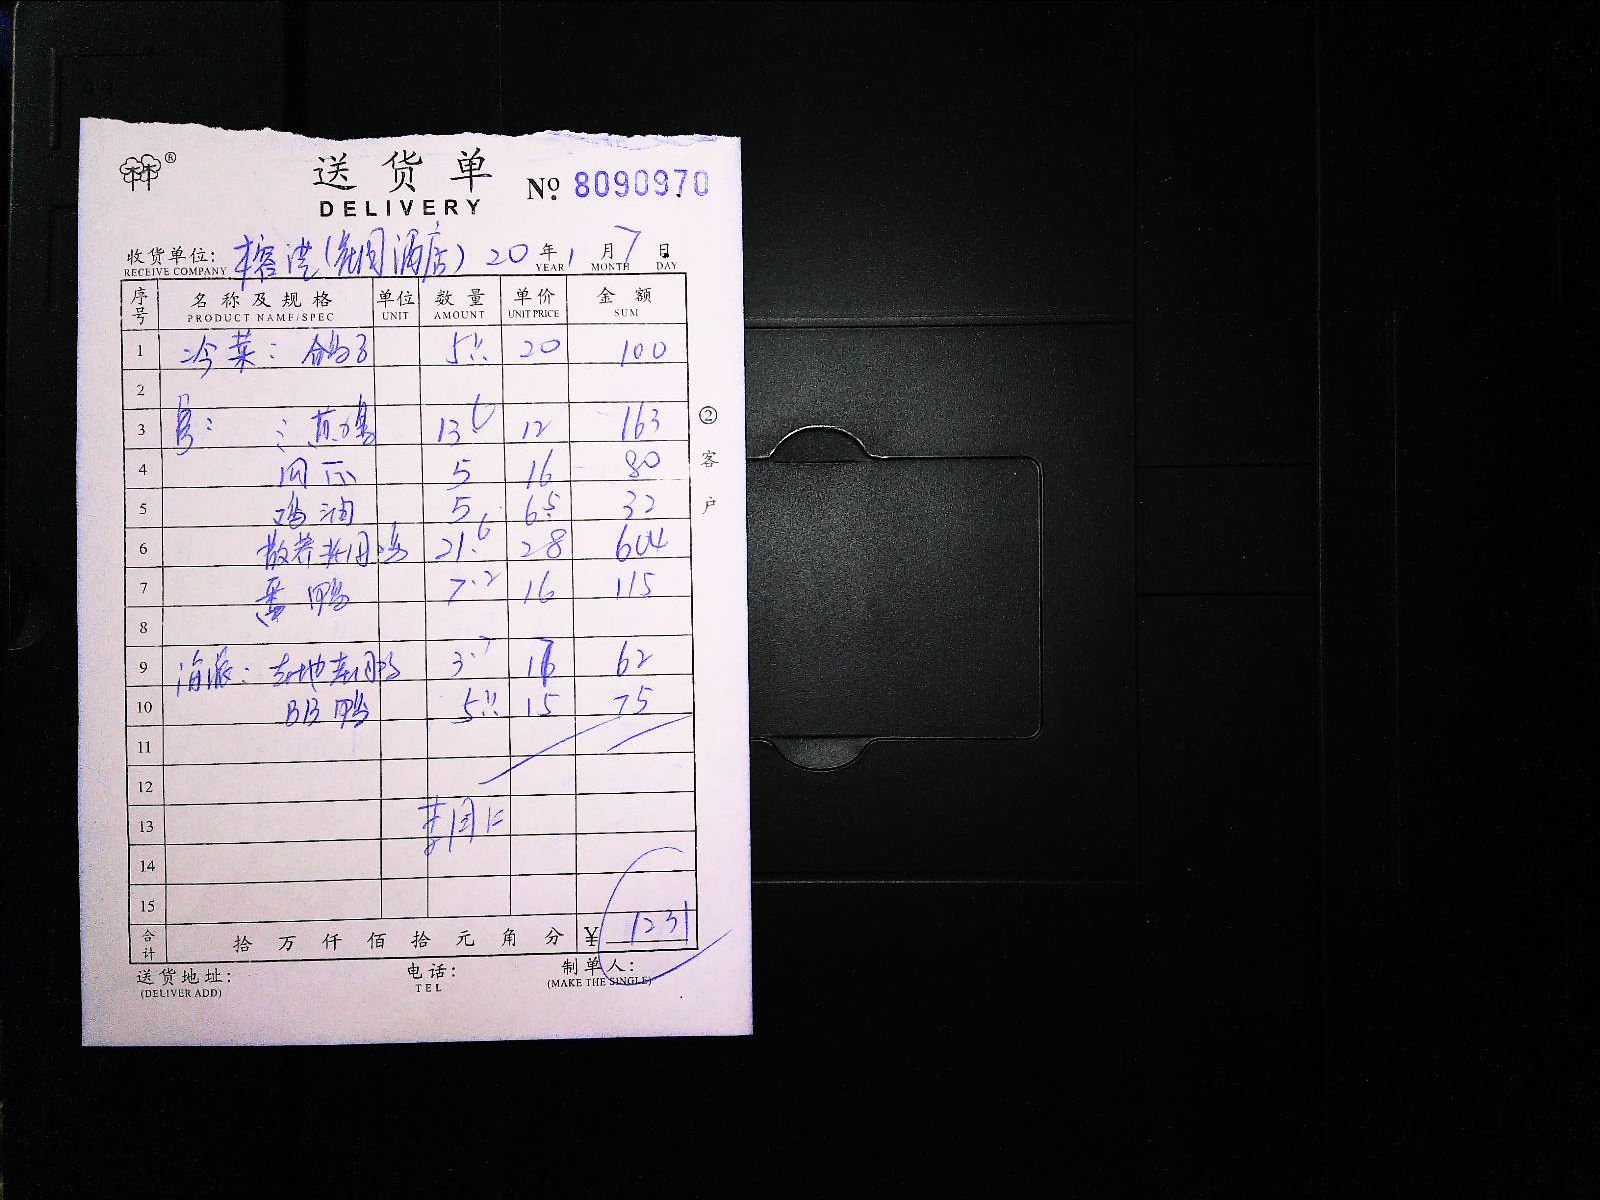 ®
送货单 № 8090970
DELIVERY
收货单位: 榕港(花园酒店) 20 年 1 月 7 日
RECEIVE COMPANY YEAR MONTH DAY
序号 名称及规格 单位 数量 单价 金额
PRODUCT NAME/SPEC UNIT AMOUNT UNIT PRICE SUM
1 冷菜: 鸽子 5 20 100
2
3 13.6 12 163
4 5 16 80
5 鸡油 5 6.5 32
6 散养 21.6 28 604
7 番鸭 7.2 16 115
8
9 本地 3.7 62
10 BB鸭 5 15 75
11
12
13
14
15
合计 拾 万 仟 佰 拾 元 角 分 ¥ 1231
送货地址: 电话: 制单人:
(DELIVER ADD) TEL (MAKE THE SINGLE)
② 客户